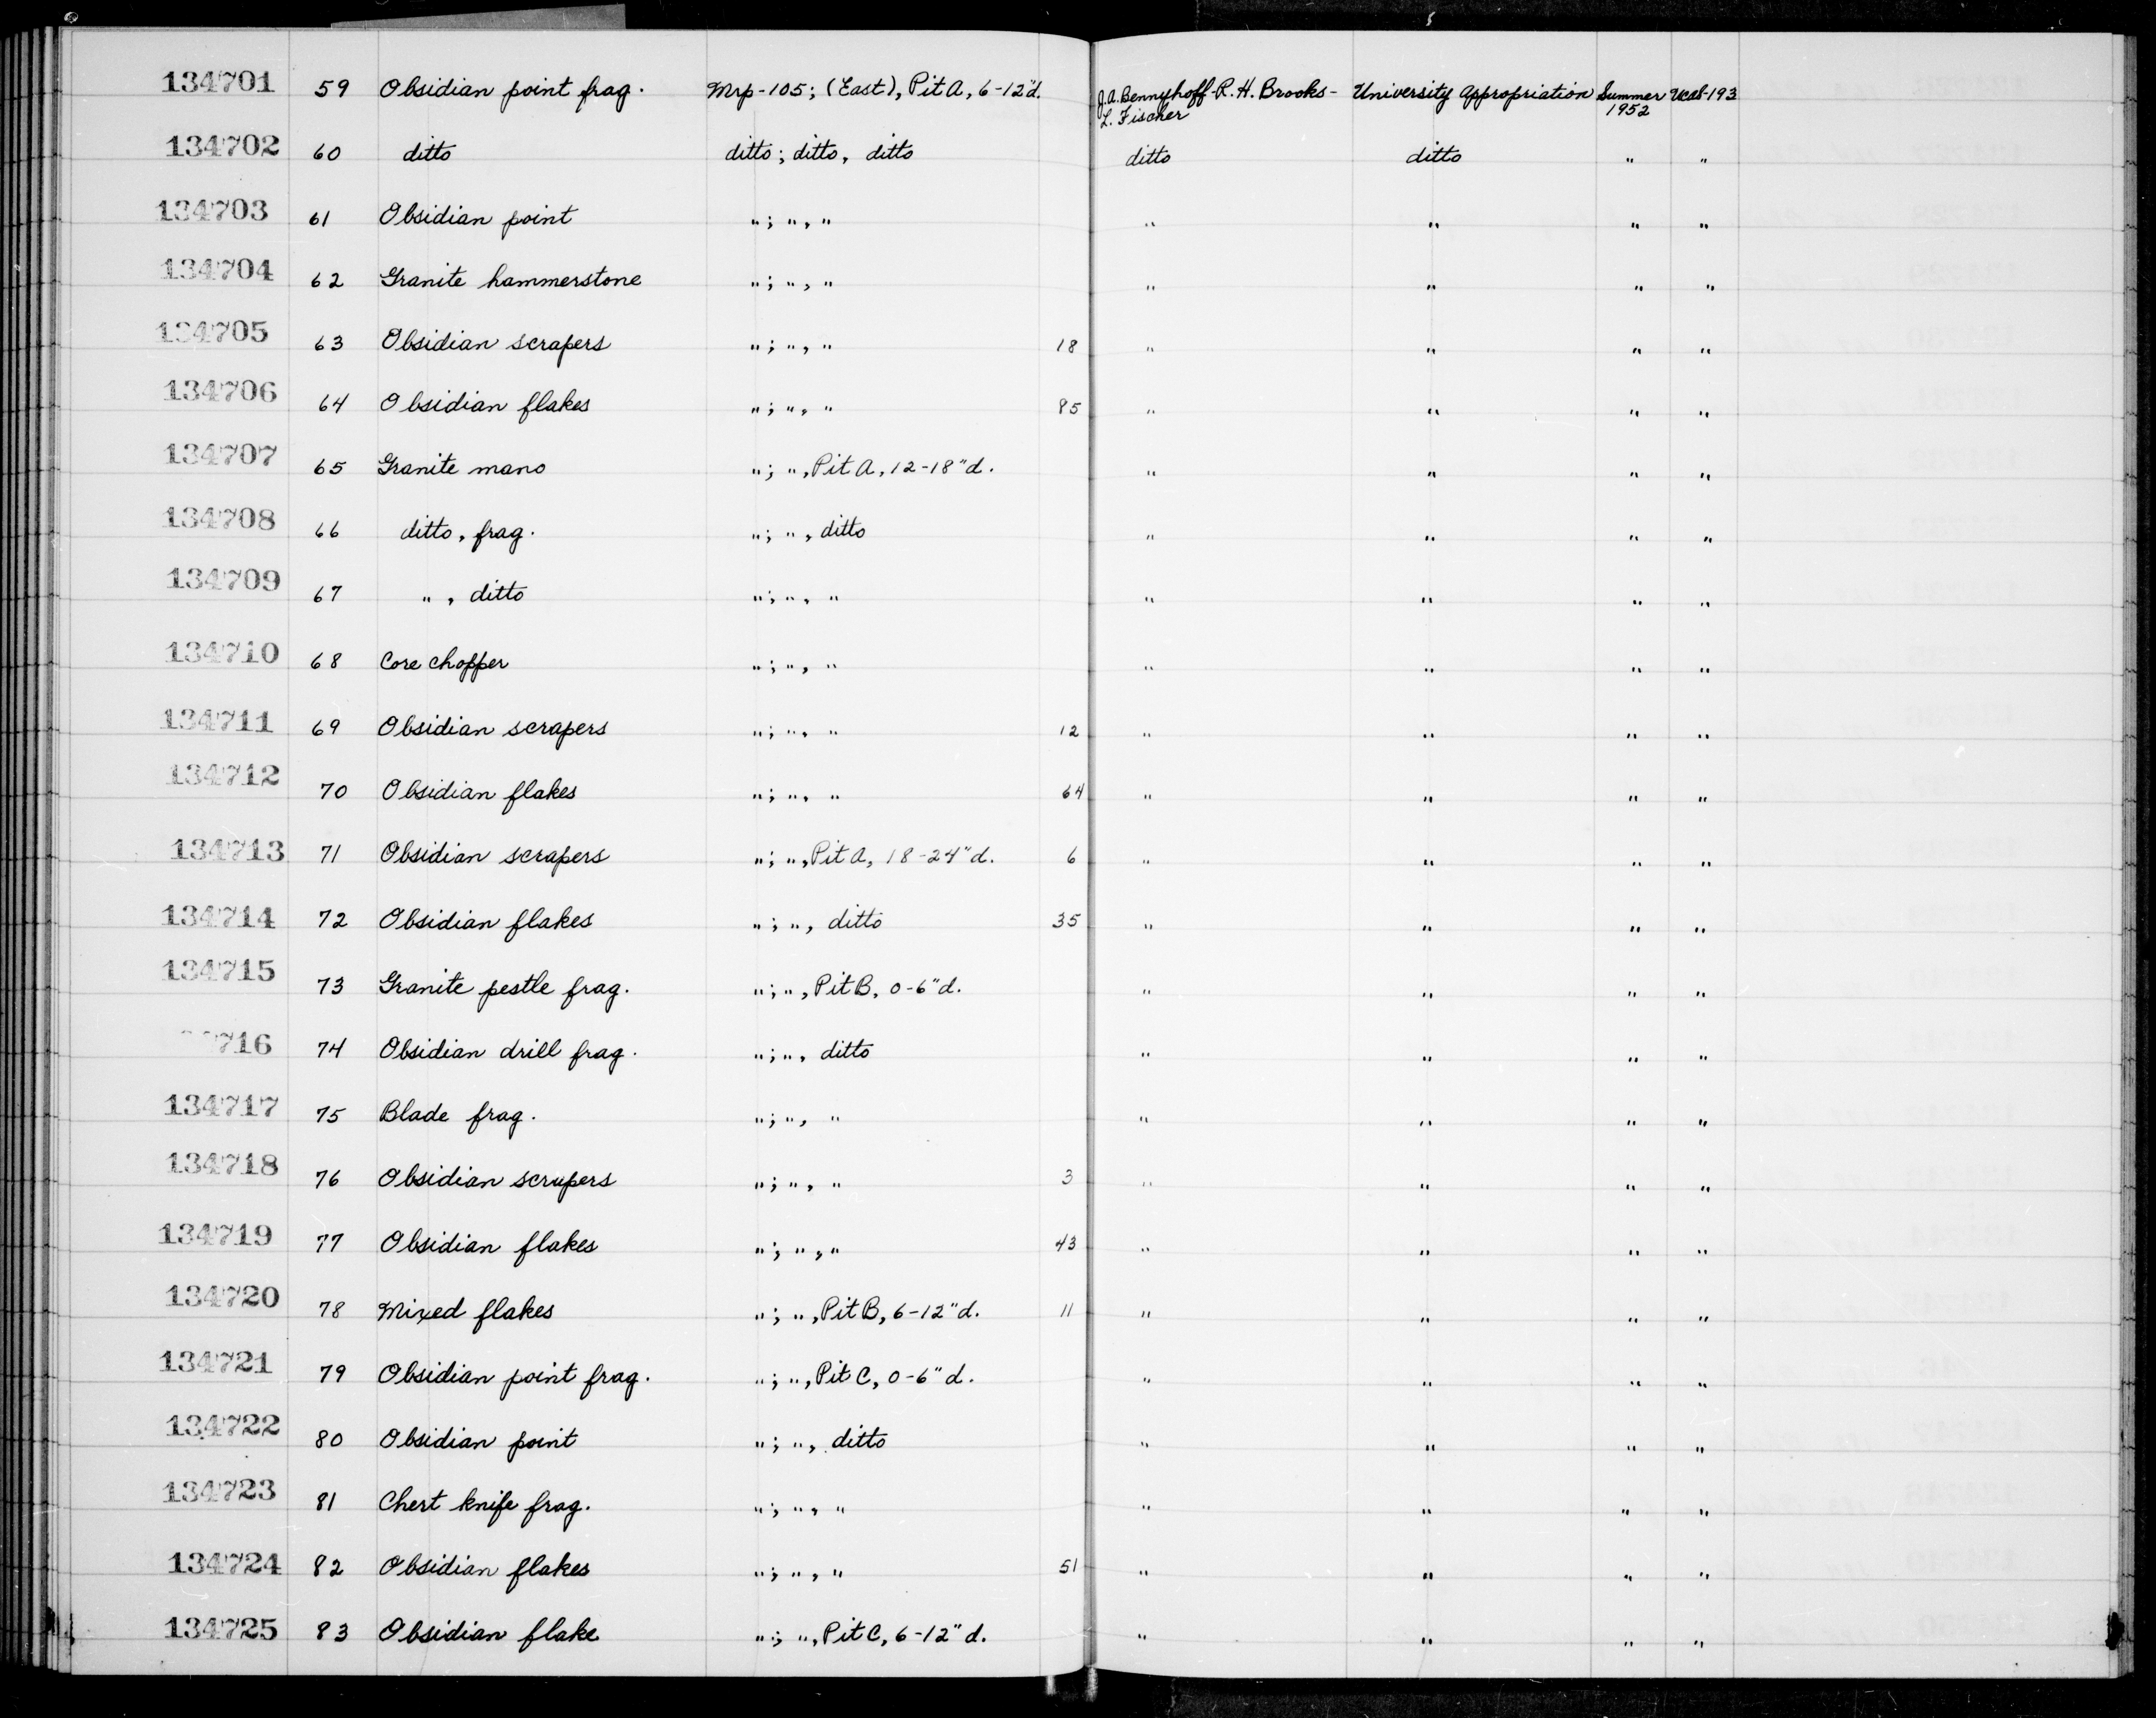 134701 59 Obsidian point frag. Mrp-105; (East), Pit A, 6-12"d. J.A. Bennyhoff-R.H. Brooks- University appropriation Summer Ucas-193
L. Fischer 1952
134702 60 ditto ditto; ditto, ditto ditto ditto " "
134703 61 Obsidian point "; ", " " " " "
134704 62 Granite hammerstone "; ", " " " " "
134705 63 Obsidian scrapers "; ", " 18 " " " "
134706 64 Obsidian flakes "; ", " 85 " " " "
134707 65 Granite mano "; ", Pit A, 12-18"d. " " " "
134708 66 ditto, frag. "; ", ditto " " " "
134709 67 ", ditto "; ", " " " " "
134710 68 Core chopper "; ", " " " " "
134711 69 Obsidian scrapers "; ", " 12 " " " "
134712 70 Obsidian flakes "; ", " 64 " " " "
134713 71 Obsidian scrapers "; ", Pit A, 18-24"d. 6 " " " "
134714 72 Obsidian flakes "; ", ditto 35 " " " "
134715 73 Granite pestle frag. "; ", Pit B, 0-6"d. " " " "
716 74 Obsidian drill frag. "; ", ditto " " " "
134717 75 Blade frag. "; ", " " " " "
134718 76 Obsidian scrapers "; ", " 3 " " " "
134719 77 Obsidian flakes "; ", " 43 " " " "
134720 78 Mixed flakes "; ", Pit B, 6-12"d. 11 " " " "
134721 79 Obsidian point frag. "; ", Pit C, 0-6"d. " " " "
134722 80 Obsidian point "; ", ditto " " " "
134723 81 Chert knife frag. "; ", " " " " "
134724 82 Obsidian flakes "; ", " 51 " " " "
134725 83 Obsidian flake "; ", Pit C, 6-12"d. " " " "